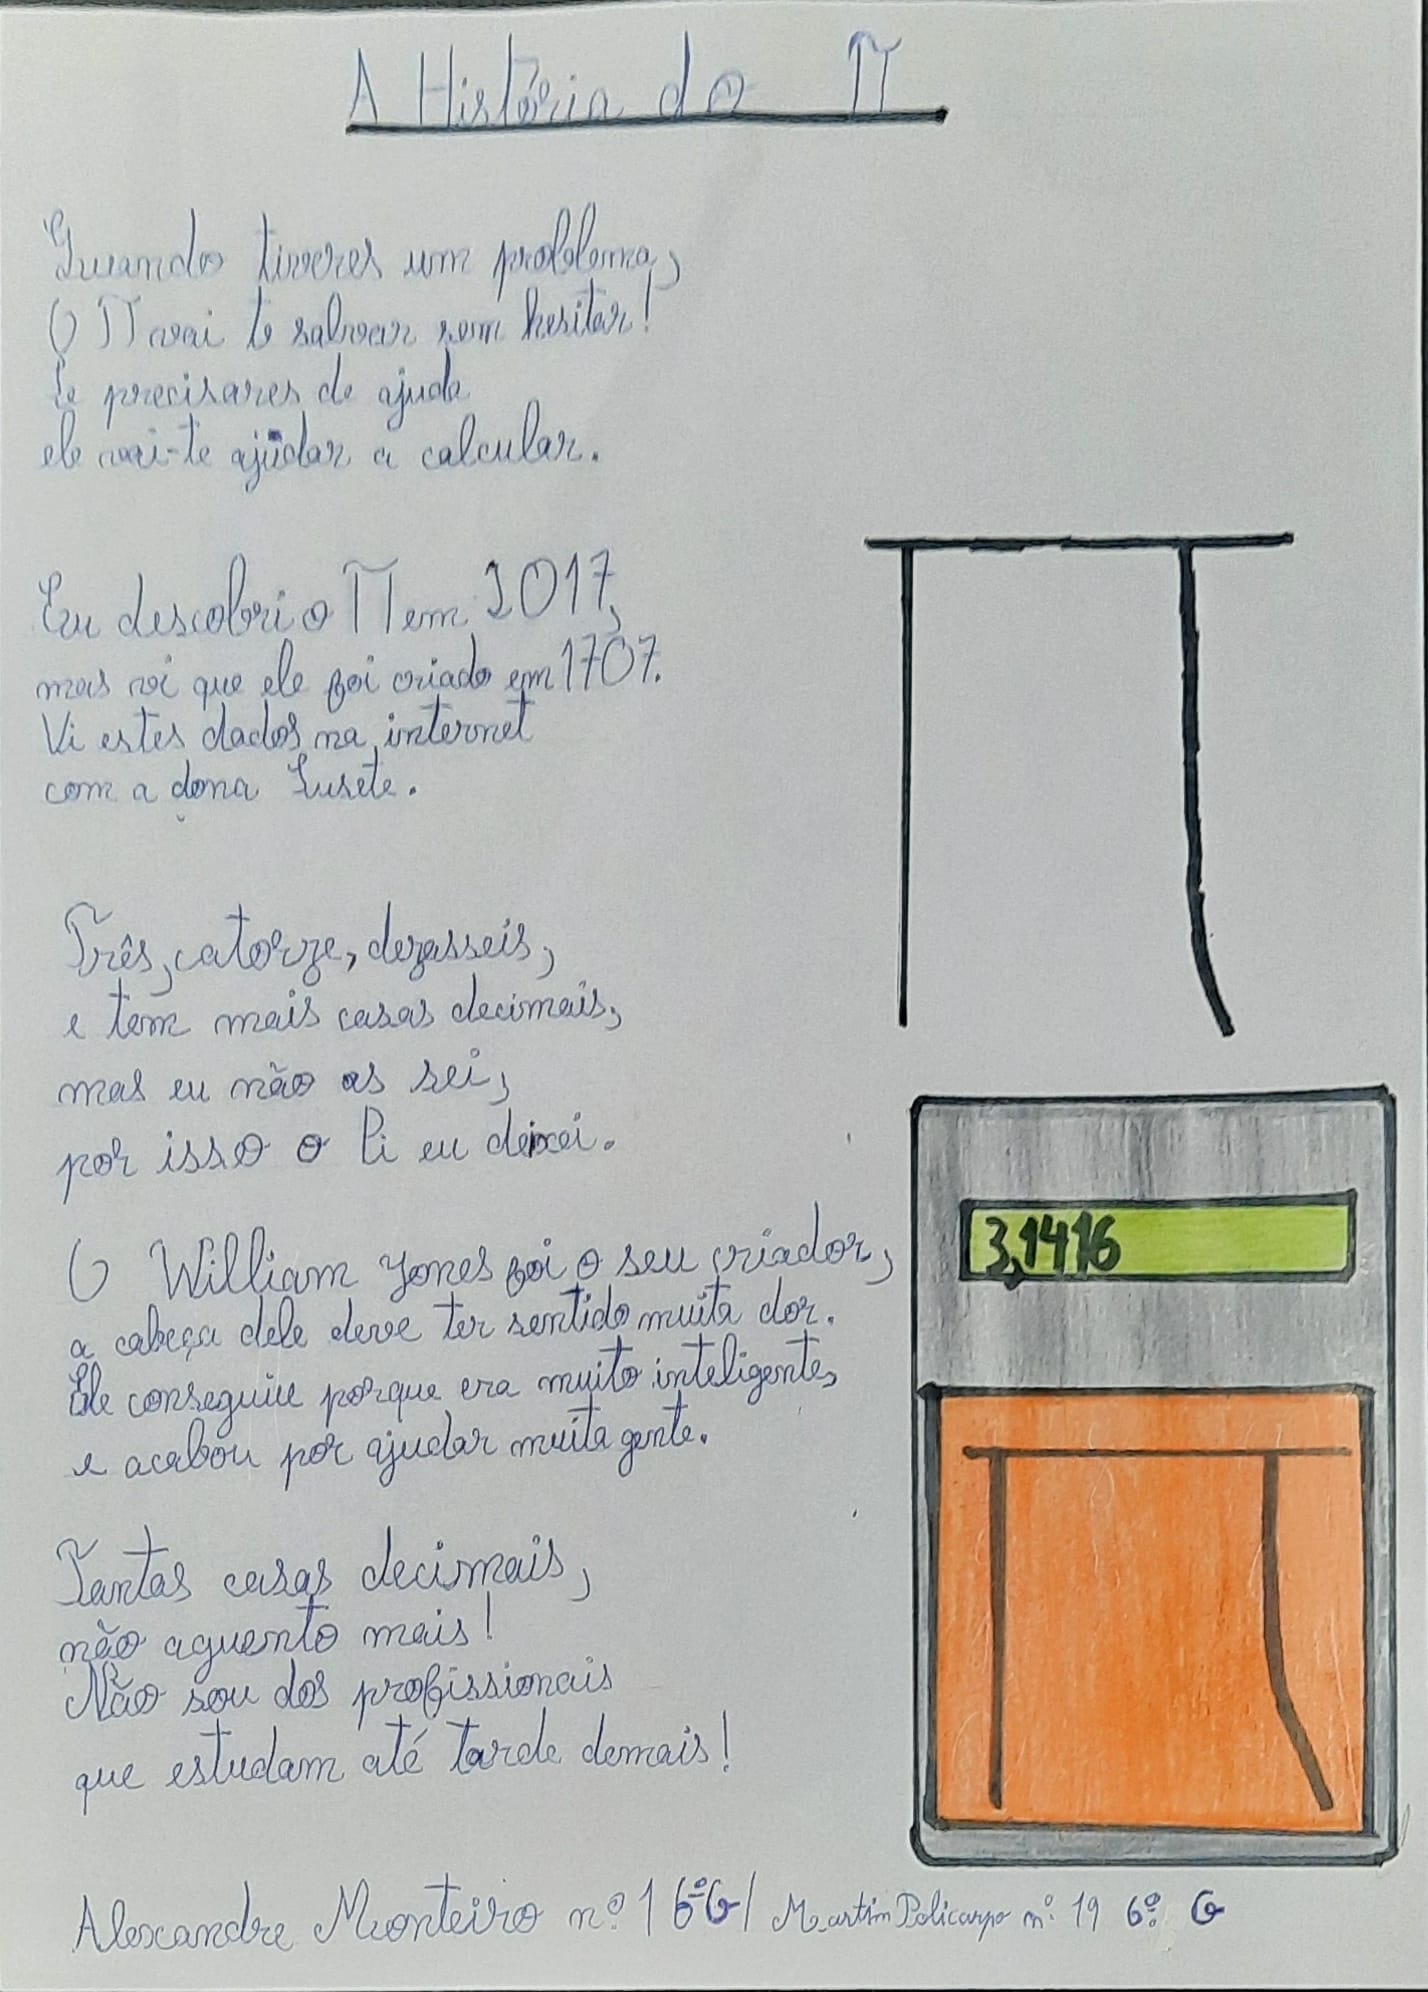 A História do π
Quando tiveres um problema,
O π vai te salvar sem hesitar!
Se precisares de ajuda
ele vai-te ajudar a calcular.
Eu descobri o π em 2017,
mas vi que ele foi criado em 1707.
Vi estes dados na internet
com a dona Lusete.
Três, catorze, dezasseis,
e tem mais casas decimais,
mas eu não as sei,
por isso o Pi eu deixei.
O William Jones foi o seu criador,
a cabeça dele deve ter sentido muita dor.
Ele conseguiu porque era muito inteligente,
e acabou por ajudar muita gente.
Tantas casas decimais,
não aguento mais!
Não sou dos profissionais
que estudam até tarde demais!
π
3,1416
π
Alexandre Monteiro nº 1 6ºG/ Martim Policarpo nº 19 6º G